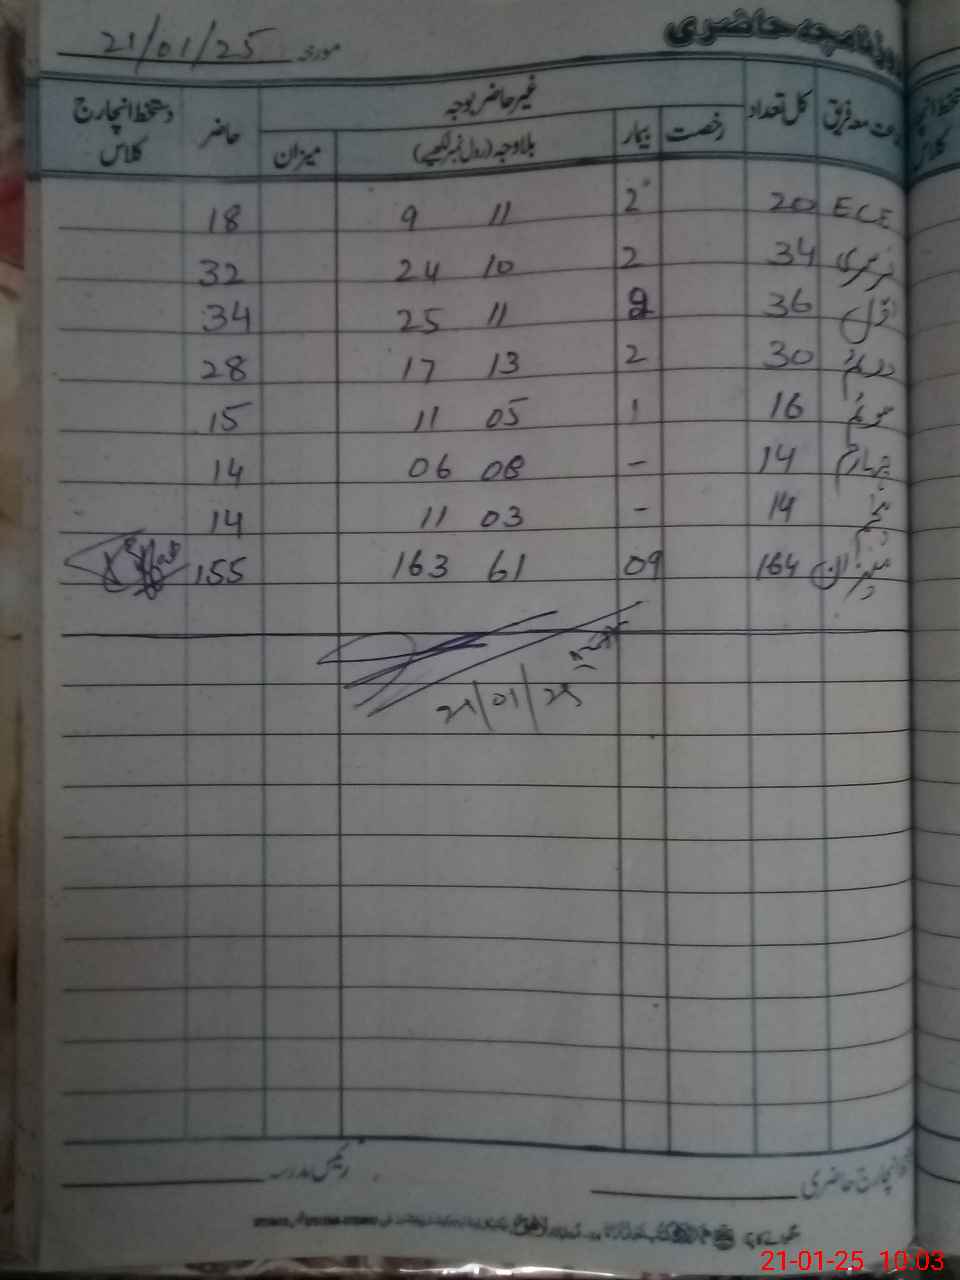 روزنامچہ حاضری
مورخہ 21/01/25
جماعت معہ فریق کل تعداد غیر حاضر بوجہ حاضر دستخط انچارج کلاس
رخصت بیمار بلاوجہ (رول نمبر لکھیے) میزان
ECE 20 2 11 9 18
نرسری 34 2 10 24 32
اول 36 2 11 25 34
دوئم 30 2 13 17 28
سوئم 16 1 05 11 15
چہارم 14 - 08 06 14
پنجم 14 - 03 11 14
میزان 164 09 61 163 155
21/01/25
دستخط انچارج حاضری
رئیس مدرسہ
21-01-25 10:03